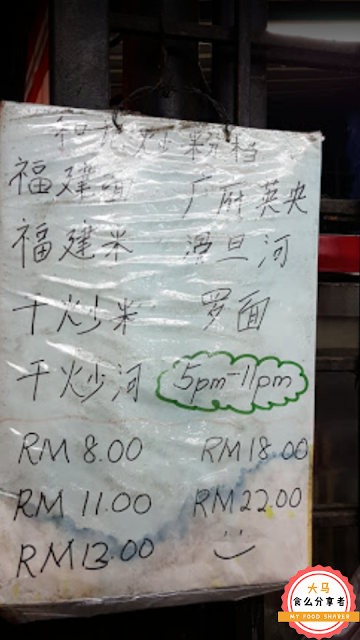 粉档
福建面
广府英央
福建米
滑旦河
干炒米
罗面
干炒河
5pm-11pm
RM 8.00
RM 18.00
RM 11.00
RM 22.00
RM 13.00
大马
食么分享者
MY FOOD SHARER